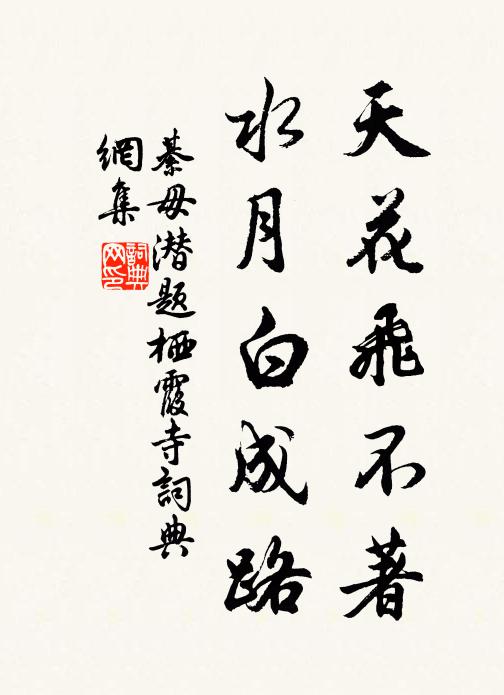 天花飛不著
水月白成路
綦毋潜題栖霞寺詞典
網集
詞典
网印